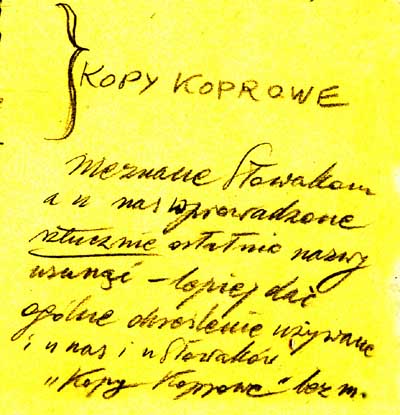 KOPY KOPROWE
nieznane Słowakom
a u nas wprowadzone
sztucznie ostatnio nazwy
usunąć – lepiej dać
ogólne określenie używane
i u nas i u Słowaków
"Kopy Koprowe" bez m.